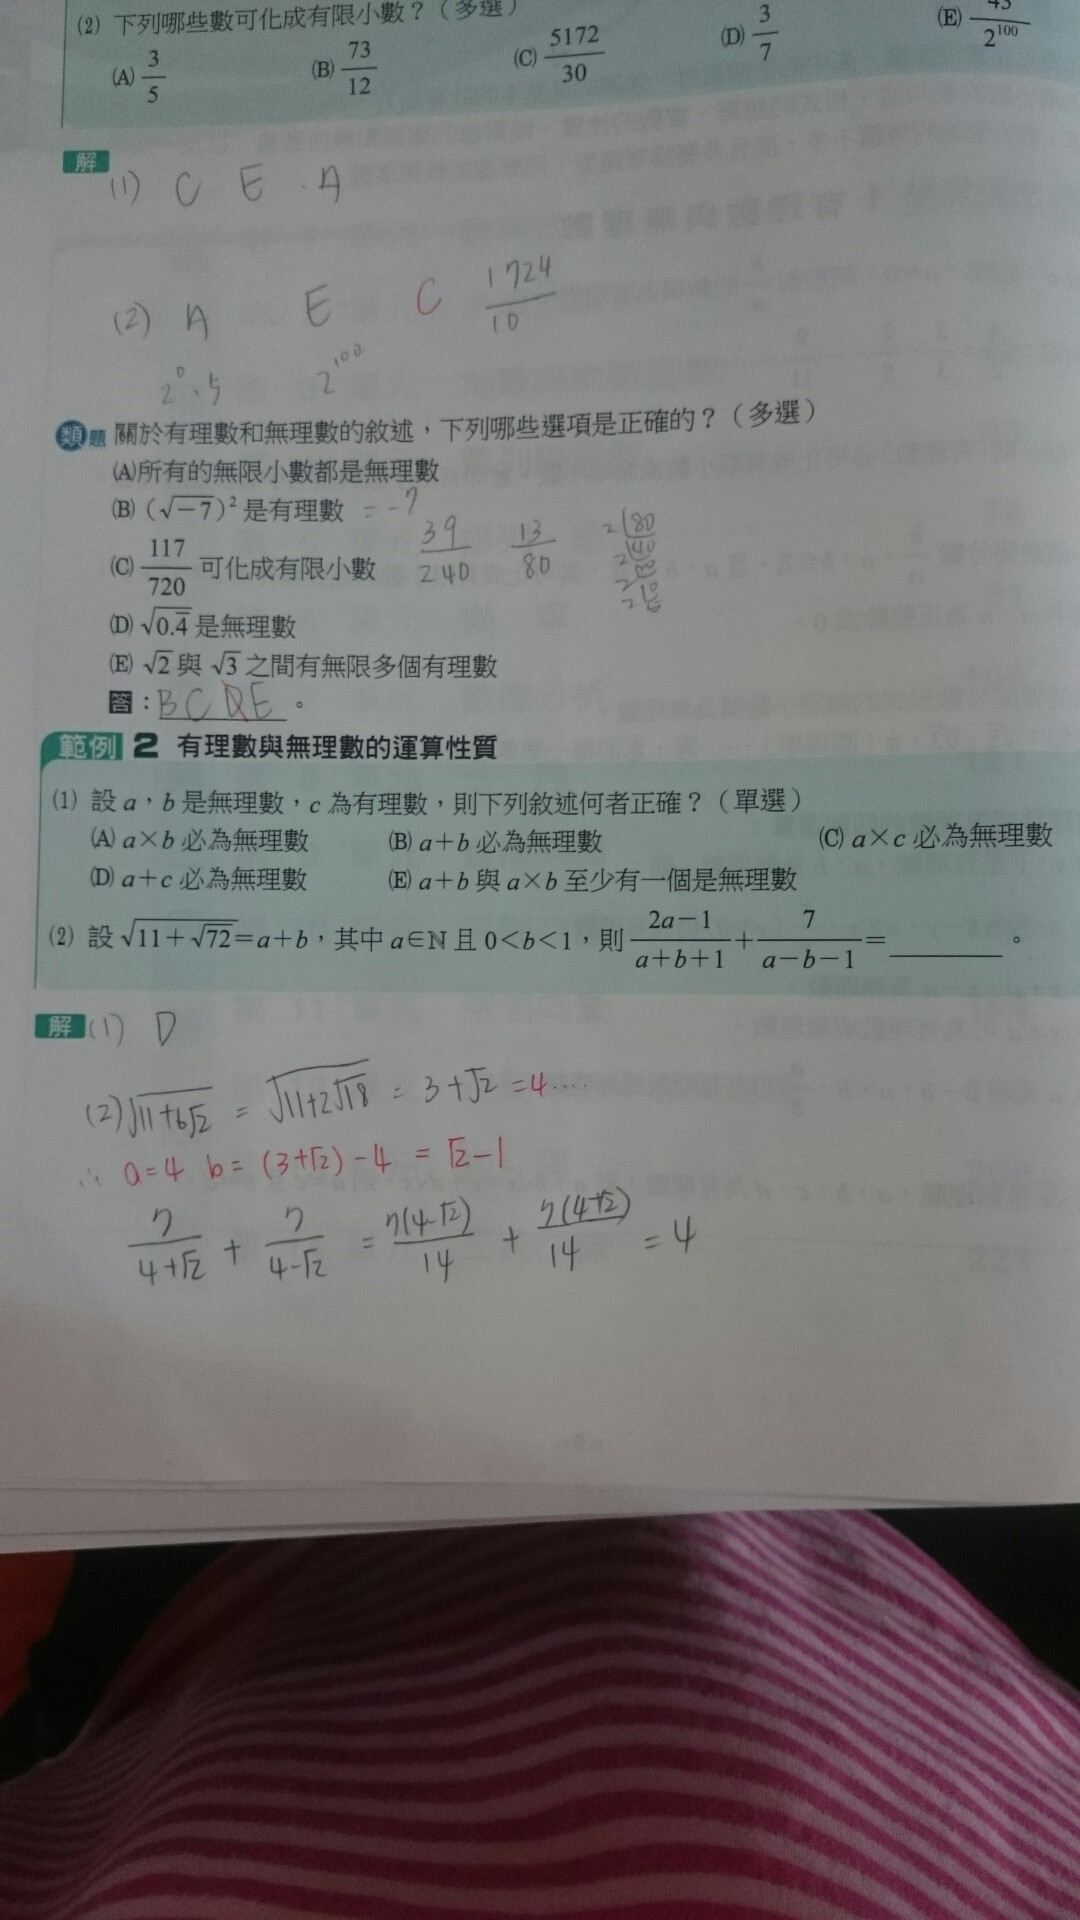 (2) 下列哪些數可化成有限小數？（多選）
(A) 3/5 (B) 73/12 (C) 5172/30 (D) 3/7 (E) 43/2^100
解
(1) C E . A
(2) A E C 1724/10
2^0 . 5 2^100
類題 關於有理數和無理數的敘述，下列哪些選項是正確的？（多選）
(A)所有的無限小數都是無理數
(B) (√-7)² 是有理數 = -7
(C) 117/720 可化成有限小數 39/240 13/80
(D) √0.4̅ 是無理數
(E) √2 與 √3 之間有無限多個有理數
答：BCDE。
範例 2 有理數與無理數的運算性質
(1) 設 a，b 是無理數，c 為有理數，則下列敘述何者正確？（單選）
(A) a×b 必為無理數 (B) a+b 必為無理數 (C) a×c 必為無理數
(D) a+c 必為無理數 (E) a+b 與 a×b 至少有一個是無理數
(2) 設 √(11+√72)=a+b，其中 a∈N 且 0<b<1，則 (2a-1)/(a+b+1) + 7/(a-b-1) = ______。
解 (1) D
(2) √(11+6√2) = √(11+2√18) = 3+√2 = 4....
∴ a=4 b= (3+√2) -4 = √2-1
7/(4+√2) + 7/(4-√2) = 7(4-√2)/14 + 7(4+√2)/14 = 4